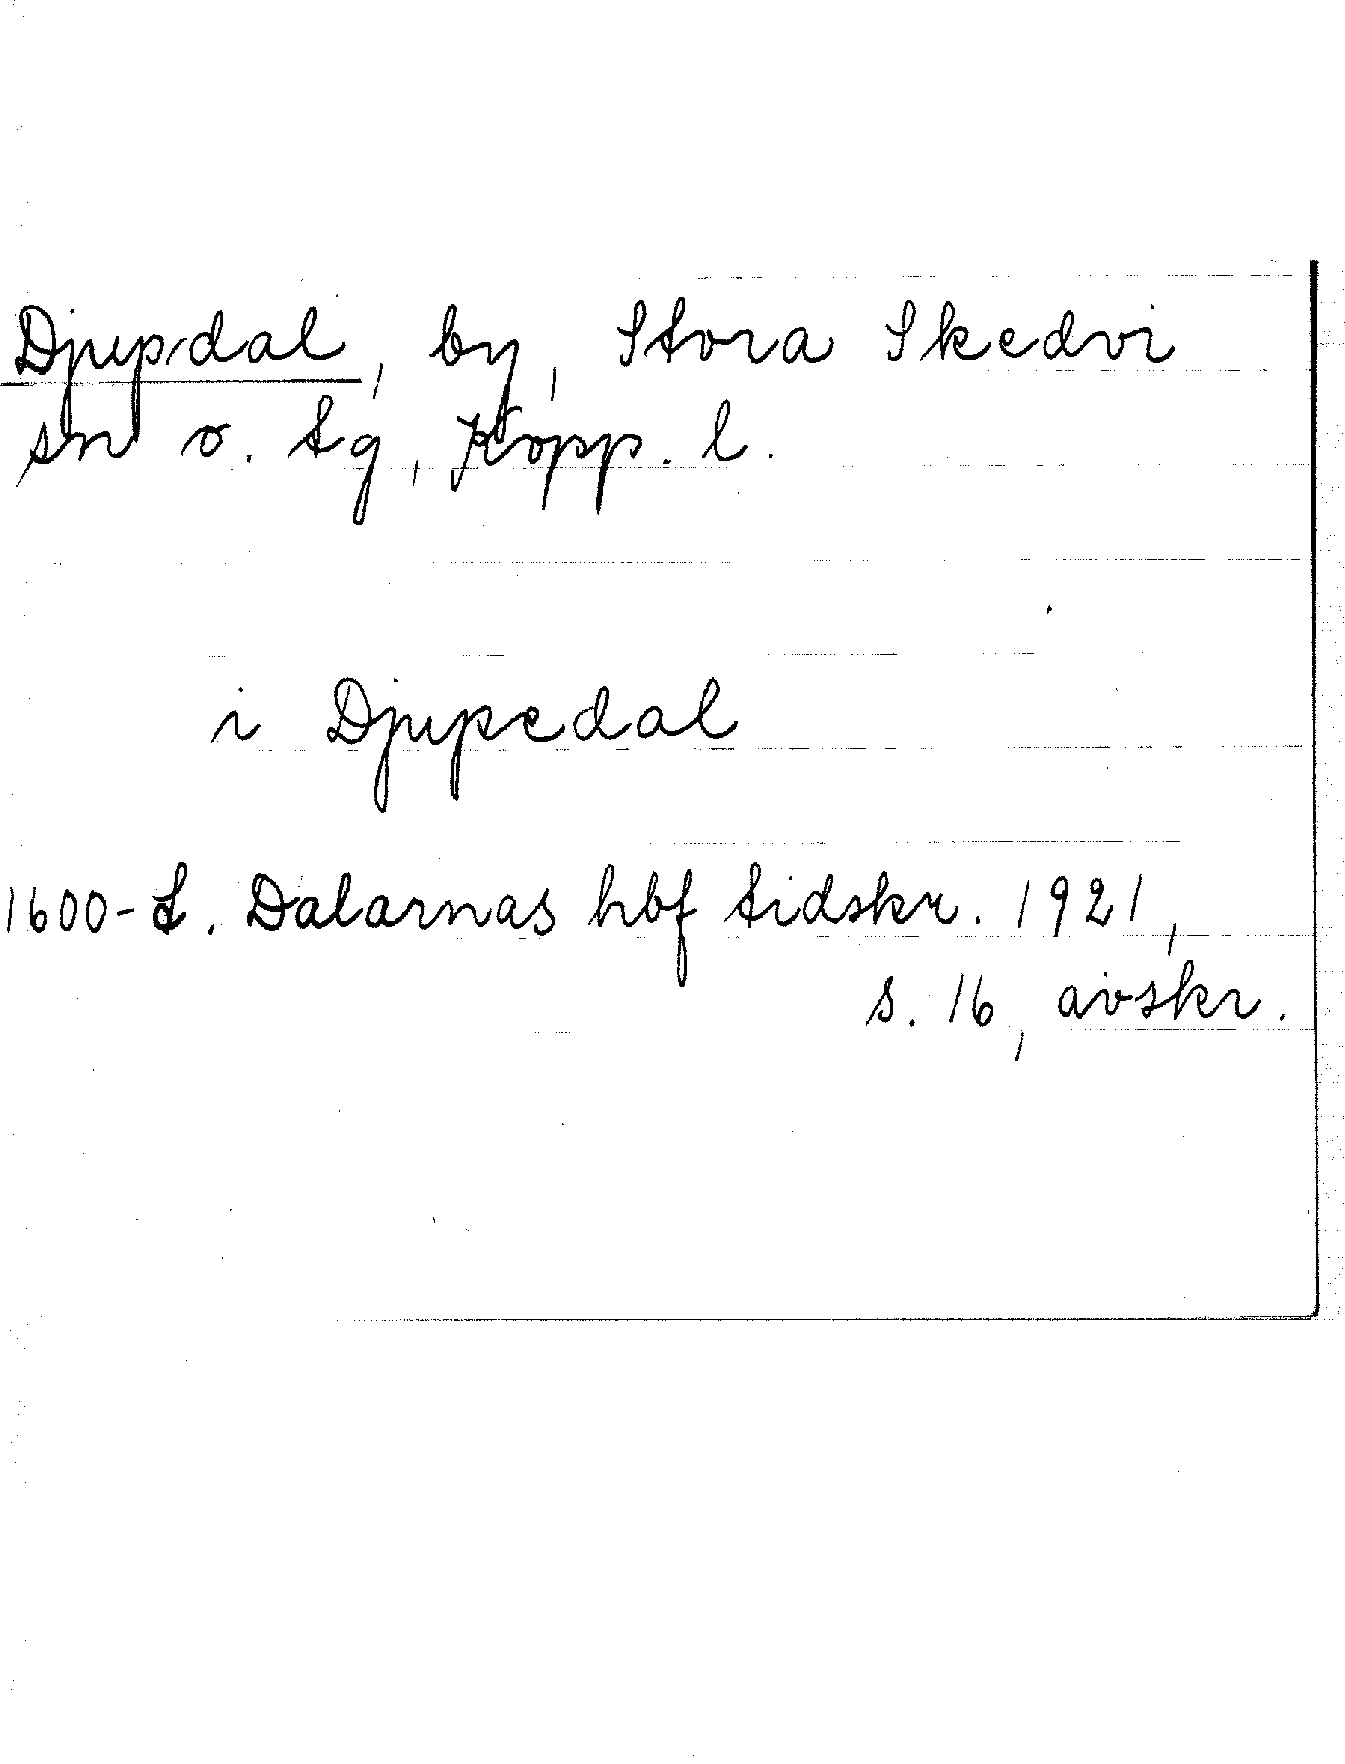 Djupdal, by, Stora Skedvi
sn o. tg, Kopp. l.
i Djupedal
1600-t. Dalarnas hbf tidskr. 1921,
s. 16, avskr.